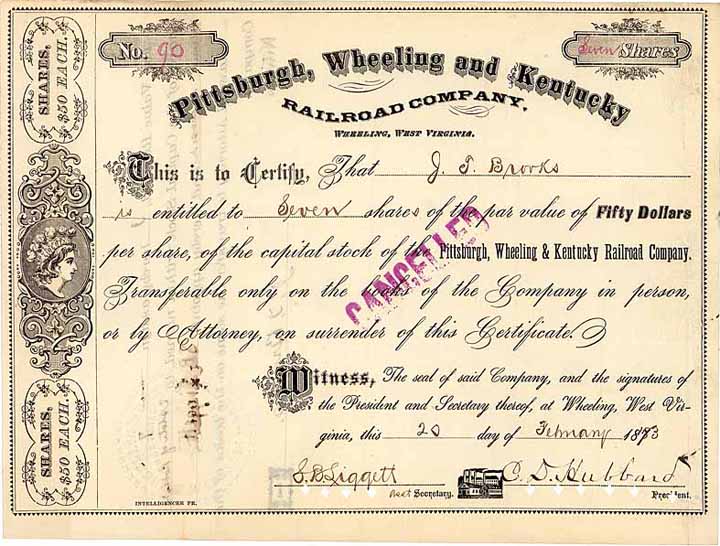 No. 90
Seven Shares
SHARES,
$50 EACH.
Pittsburgh, Wheeling and Kentucky
RAILROAD COMPANY.
WHEELING, WEST VIRGINIA.
This is to Certify, That J. T. Brooks
is entitled to Seven shares of the par value of Fifty Dollars
per share, of the capital stock of the Pittsburgh, Wheeling & Kentucky Railroad Company.
Transferable only on the books of the Company in person,
or by Attorney, on surrender of this Certificate.
CANCELLED
Witness, The seal of said Company, and the signatures of
the President and Secretary thereof, at Wheeling, West Vir-
ginia, this 20 day of February 1883
SHARES,
$50 EACH.
S. B. Liggett
C. D. Hubbard
Asst Secretary.
President.
INTELLIGENCER PR.